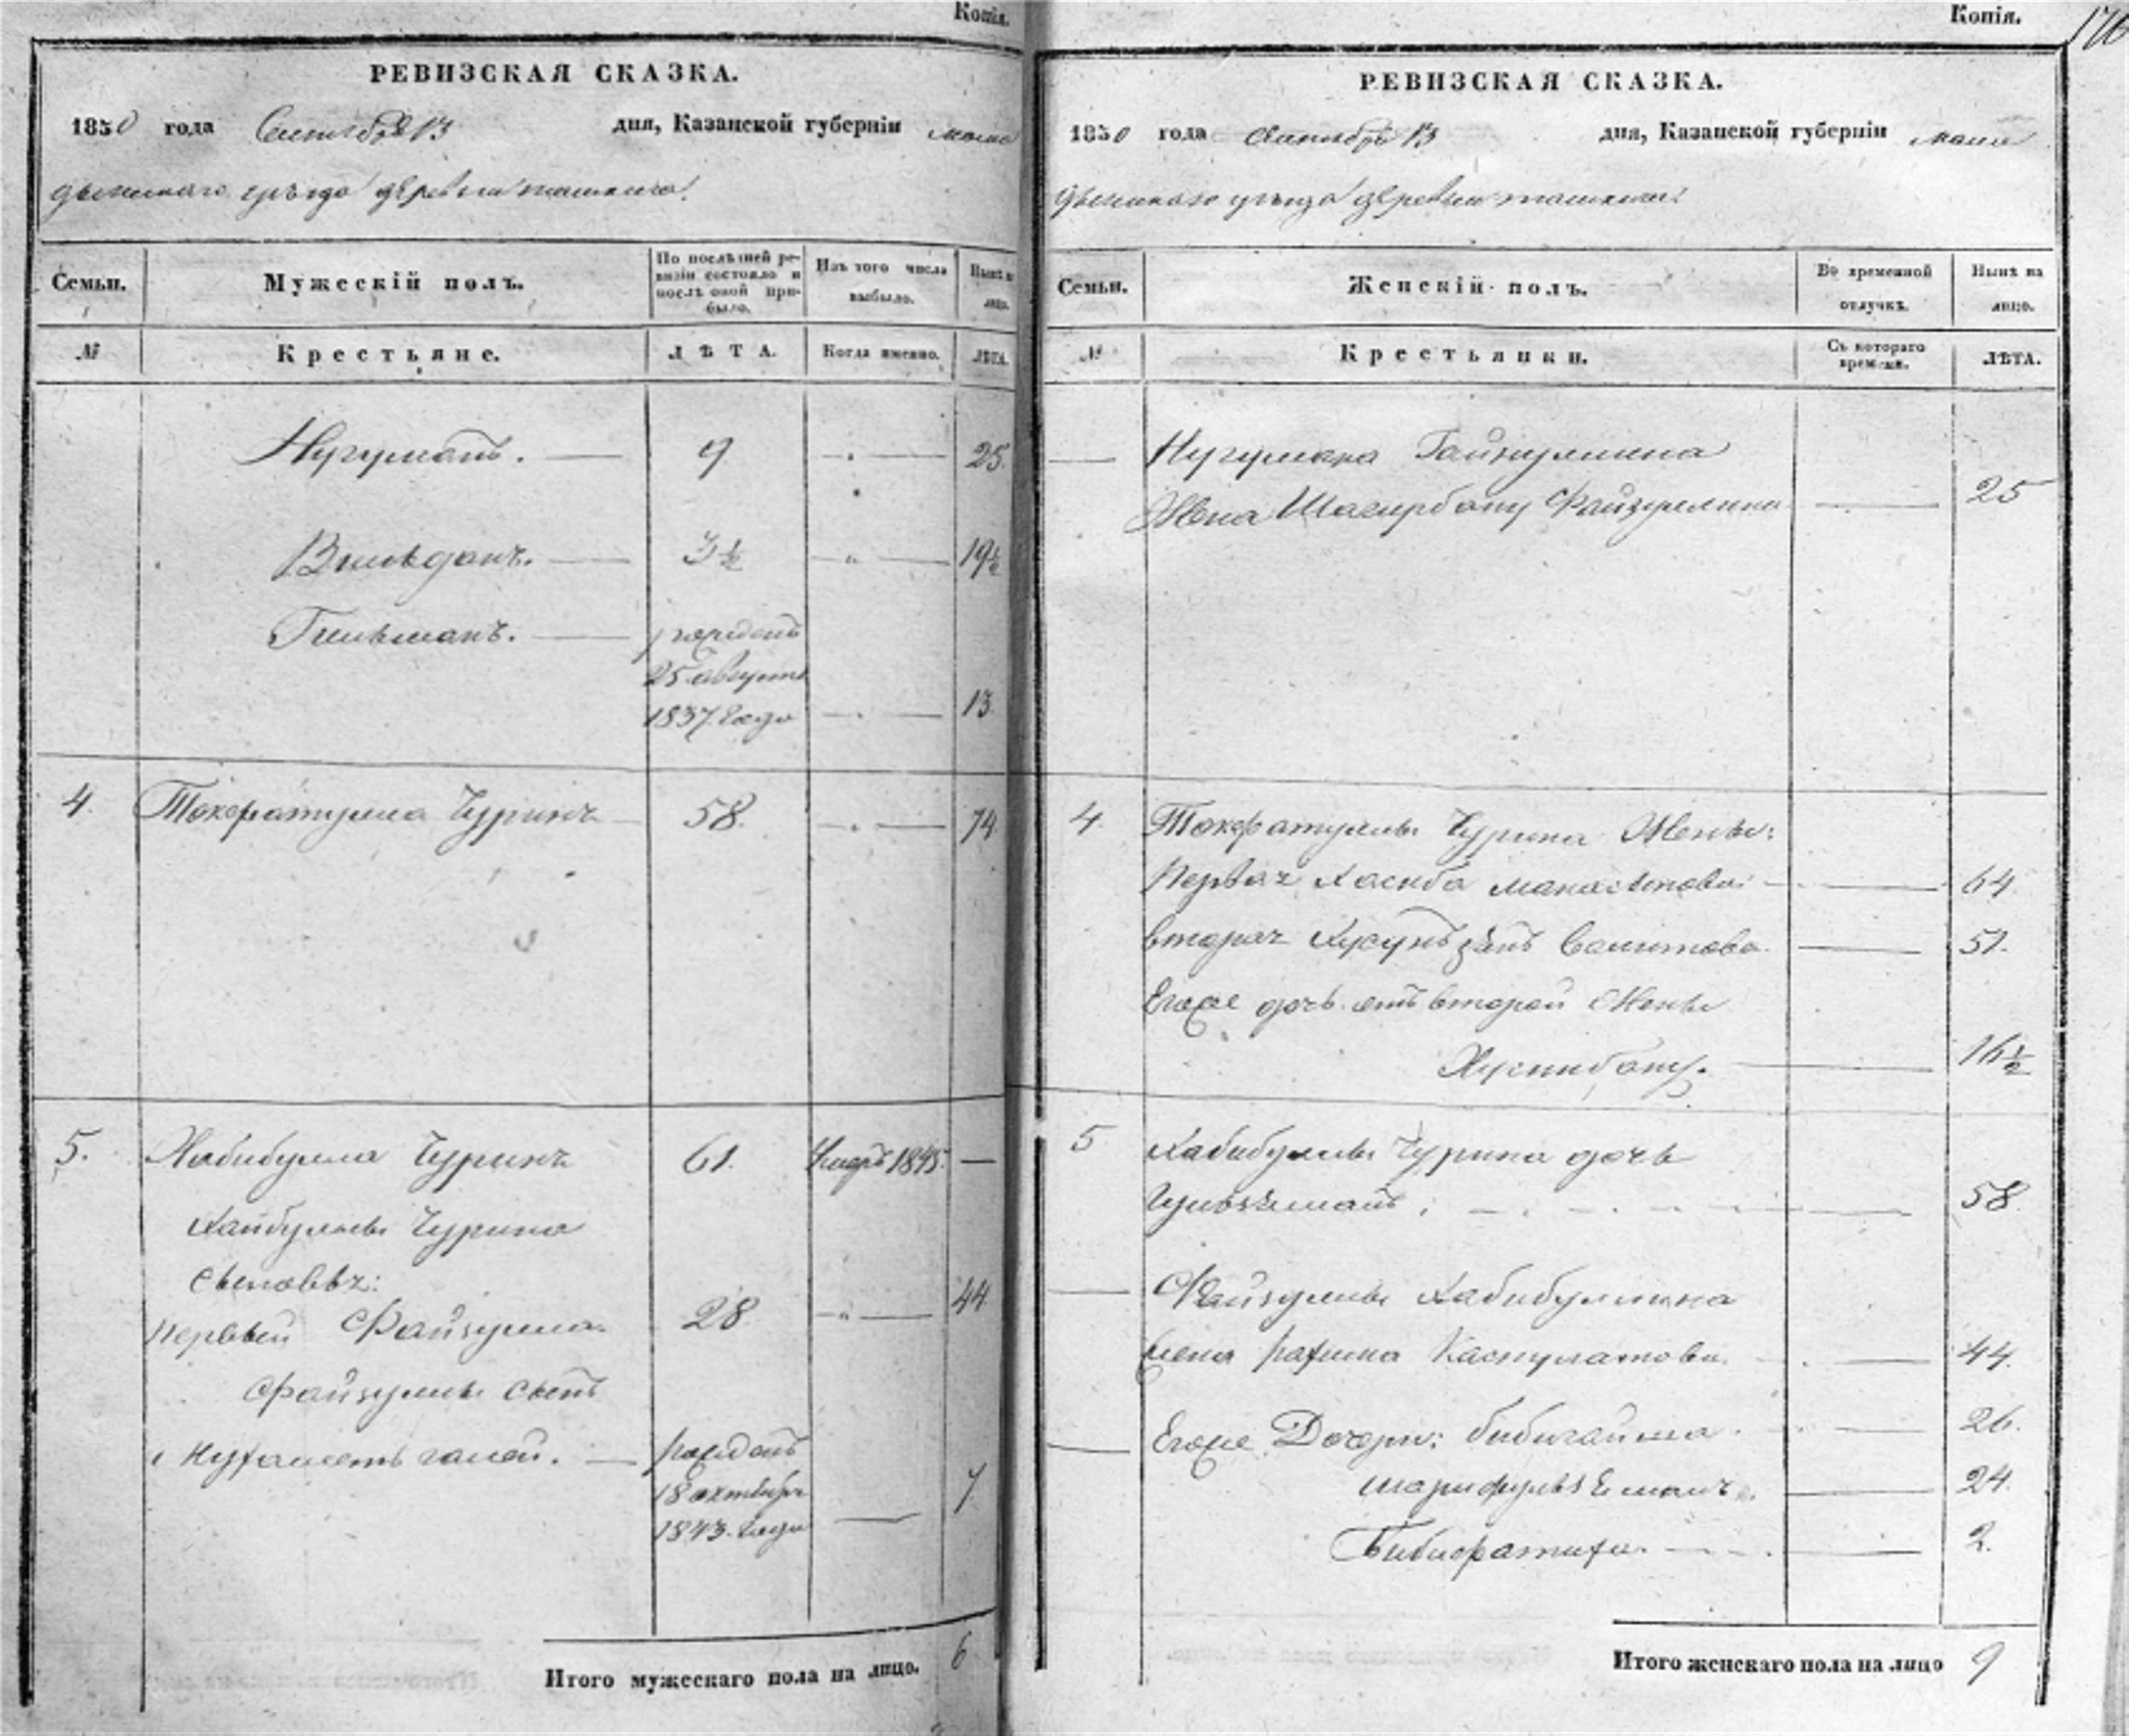 Копія.
РЕВИЗСКАЯ СКАЗКА.
1850 года Сентября 13 дня, Казанской губерніи мама
дышскаго уѣзда деревни
Семьи. Мужескій полъ. По послѣдней ре-
визіи состояло и
послѣ оной при-
было. Изъ того числа
выбыло. Нынѣ на
лицо.
№ Крестьяне. ЛѢТА. Когда именно. ЛѢТА.
9 25.
Вильданъ. 3½ 19½
Гильманъ. рожденъ
25 августа
1837 года 13.
4. Тохфатулла Чуринъ 58. 74
5. Хабибулла Чуринъ 61. Умеръ 1845. —
Хабибуллы Чурина
сыновья:
первый Файзулла. 28 44
Файзуллы сынъ
рожденъ
18 октября
1843 года 7
Итого мужескаго пола на лицо. 6
Копія. 176
РЕВИЗСКАЯ СКАЗКА.
1850 года Сентября 13 дня, Казанской губерніи мама
дышскаго уѣзда деревни
Семьи. Женскій полъ. Во временной
отлучкѣ. Нынѣ на
лицо.
№ Крестьянки. Съ котораго
времени. ЛѢТА.
Нугумана Гайнуллина
жена Шагирбану Файзуллина 25
4. Тохфатуллы Чурина жены:
первая 64.
вторая 51.
Егоже дочь отъ второй жены
Хуснибану. 16½
5 Хабибуллы Чурина дочь
58.
Файзуллы Хабибуллина
жена 44.
Егоже дочери: 26.
24.
2.
Итого женскаго пола на лицо 9